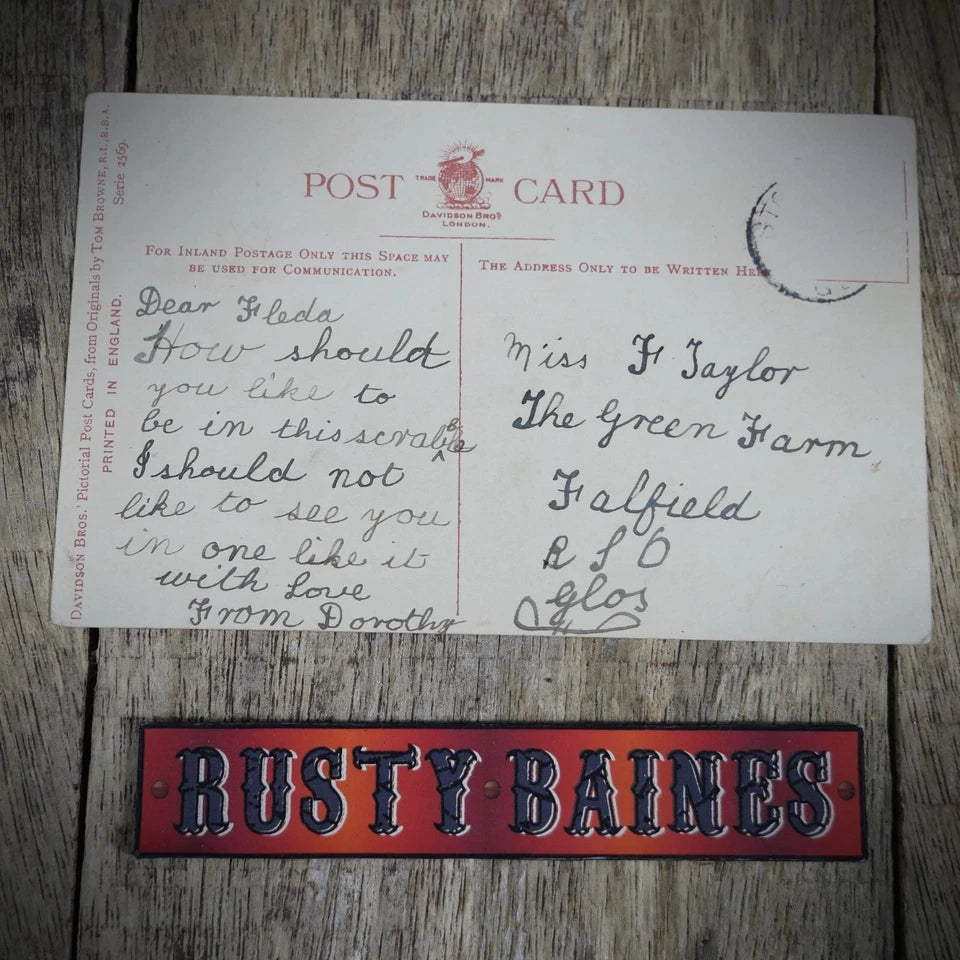 DAVIDSON BROS.' Pictorial Post Cards, from Originals by TOM BROWNE, R.I., R.B.A.
Serie 2569.
PRINTED IN ENGLAND.
POST CARD
TRADE MARK
DAVIDSON BROS
LONDON.
FOR INLAND POSTAGE ONLY THIS SPACE MAY
BE USED FOR COMMUNICATION.
THE ADDRESS ONLY TO BE WRITTEN HE
Dear Fleda
How should
you like to
be in this
I should not
like to see you
in one like it
with love
From Dorothy
Miss F Taylor
The Green Farm
Falfield
R S O
Glos
RUSTY BAINES